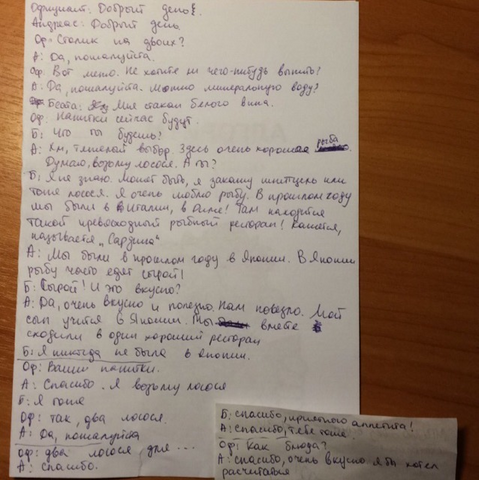 Официант: Добрый день!
Анджнас: Добрый день
Оф: Столик на двоих?
А: Да, пожалуйста.
Оф: Вот меню. Не хотите ли чего-нибудь выпить?
А: Да, пожалуйста. Можно минеральную воду?
Беата: Мне стакан белого вина.
Оф: Напитки сейчас будут.
Б: Что ты будешь?
А: Хм, тяжелый выбор. Здесь очень хорошая рыба
Думаю, возьму лосося. А ты?
Б: Я не знаю. Может быть, я закажу шницель или
тоже лосося. Я очень люблю рыбу. В прошлом году
мы были в Италии, в Риме! Там находится
такой превосходный рыбный ресторан! Кажется,
называется „Сардина"
А: Мы были в прошлом году в Японии. В Японии
рыбу часто едят сырой!
Б: Сырой! И это вкусно?
А: Да, очень вкусно и полезно. Нам повезло. Мой
сын учится в Японии. Мы вместе
сходили в один хороший ресторан
Б: Я никогда не была в Японии.
Оф: Ваши напитки.
А: Спасибо. Я возьму лосося
Б: Я тоже
Оф: так, два лосося.
А: Да, пожалуйста
Оф: два лосося для ...
А: спасибо.
Б: спасибо, приятного аппетита!
А: Спасибо, тебе тоже
Оф: Как блюда?
А: спасибо, очень вкусно. Я бы хотел
расчитаться